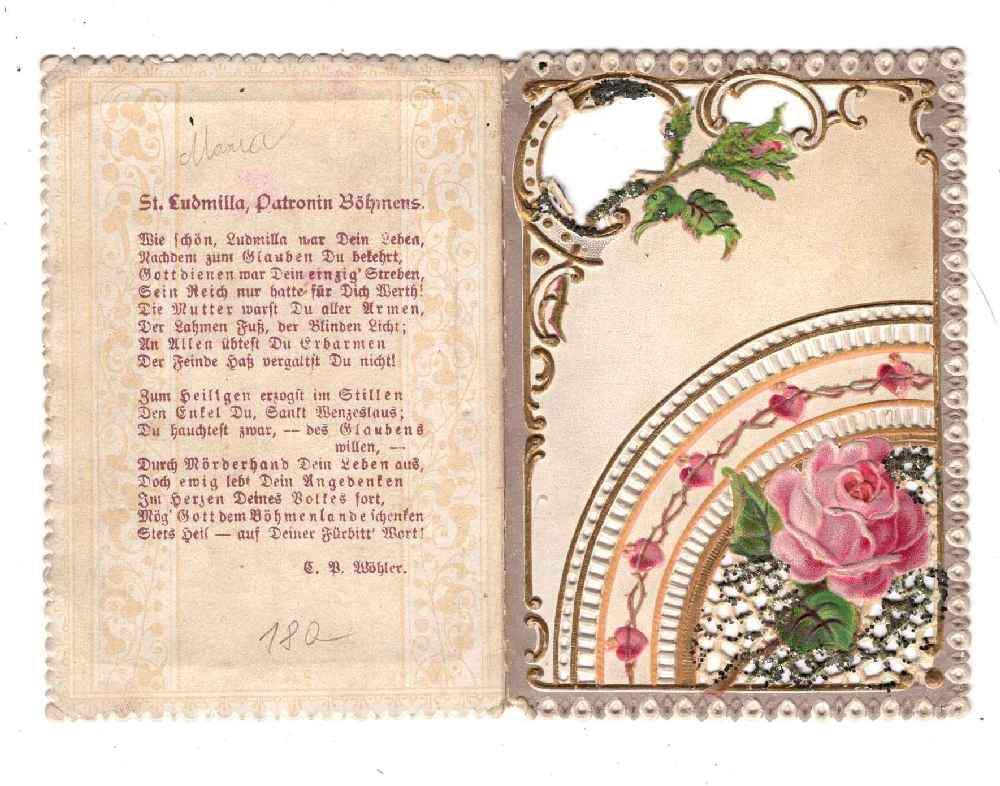 Maria
St. Ludmilla, Patronin Böhmens.
Wie schön, Ludmilla war Dein Leben,
Nachdem zum Glauben Du bekehrt,
Gott dienen war Dein einzig' Streben,
Sein Reich nur hatte für Dich Werth!
Die Mutter warst Du aller Armen,
Der Lahmen Fuß, der Blinden Licht;
An Allen übtest Du Erbarmen
Der Feinde Haß vergaltst Du nicht!
Zum Heiligen erzogst im Stillen
Den Enkel Du, Sankt Wenzeslaus;
Du hauchtest zwar, — des Glaubens
willen, —
Durch Mörderhand Dein Leben aus,
Doch ewig lebt Dein Angedenken
Im Herzen Deines Volkes fort,
Mög' Gott dem Böhmenlande schenken
Stets Heil — auf Deiner Fürbitt' Wort!
C. P. Wöhler.